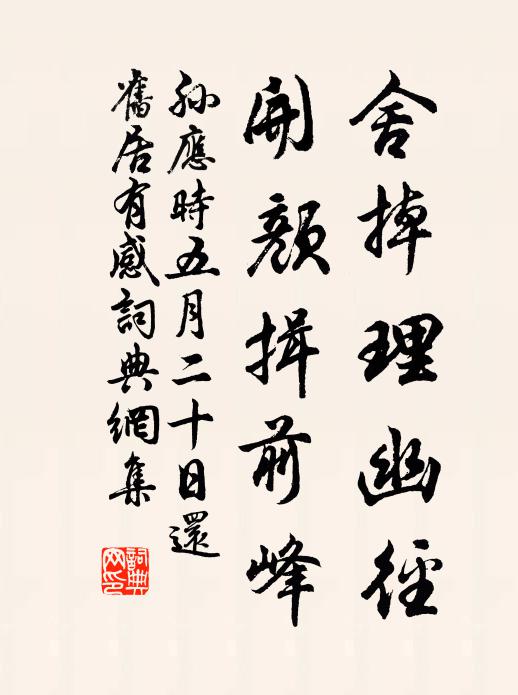 舍掉理幽徑
開顏揖前峰
孫應時五月二十日還
舊居有感詞典網集
詞典
网印